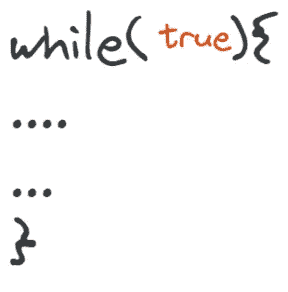 while( true){
....
...
}